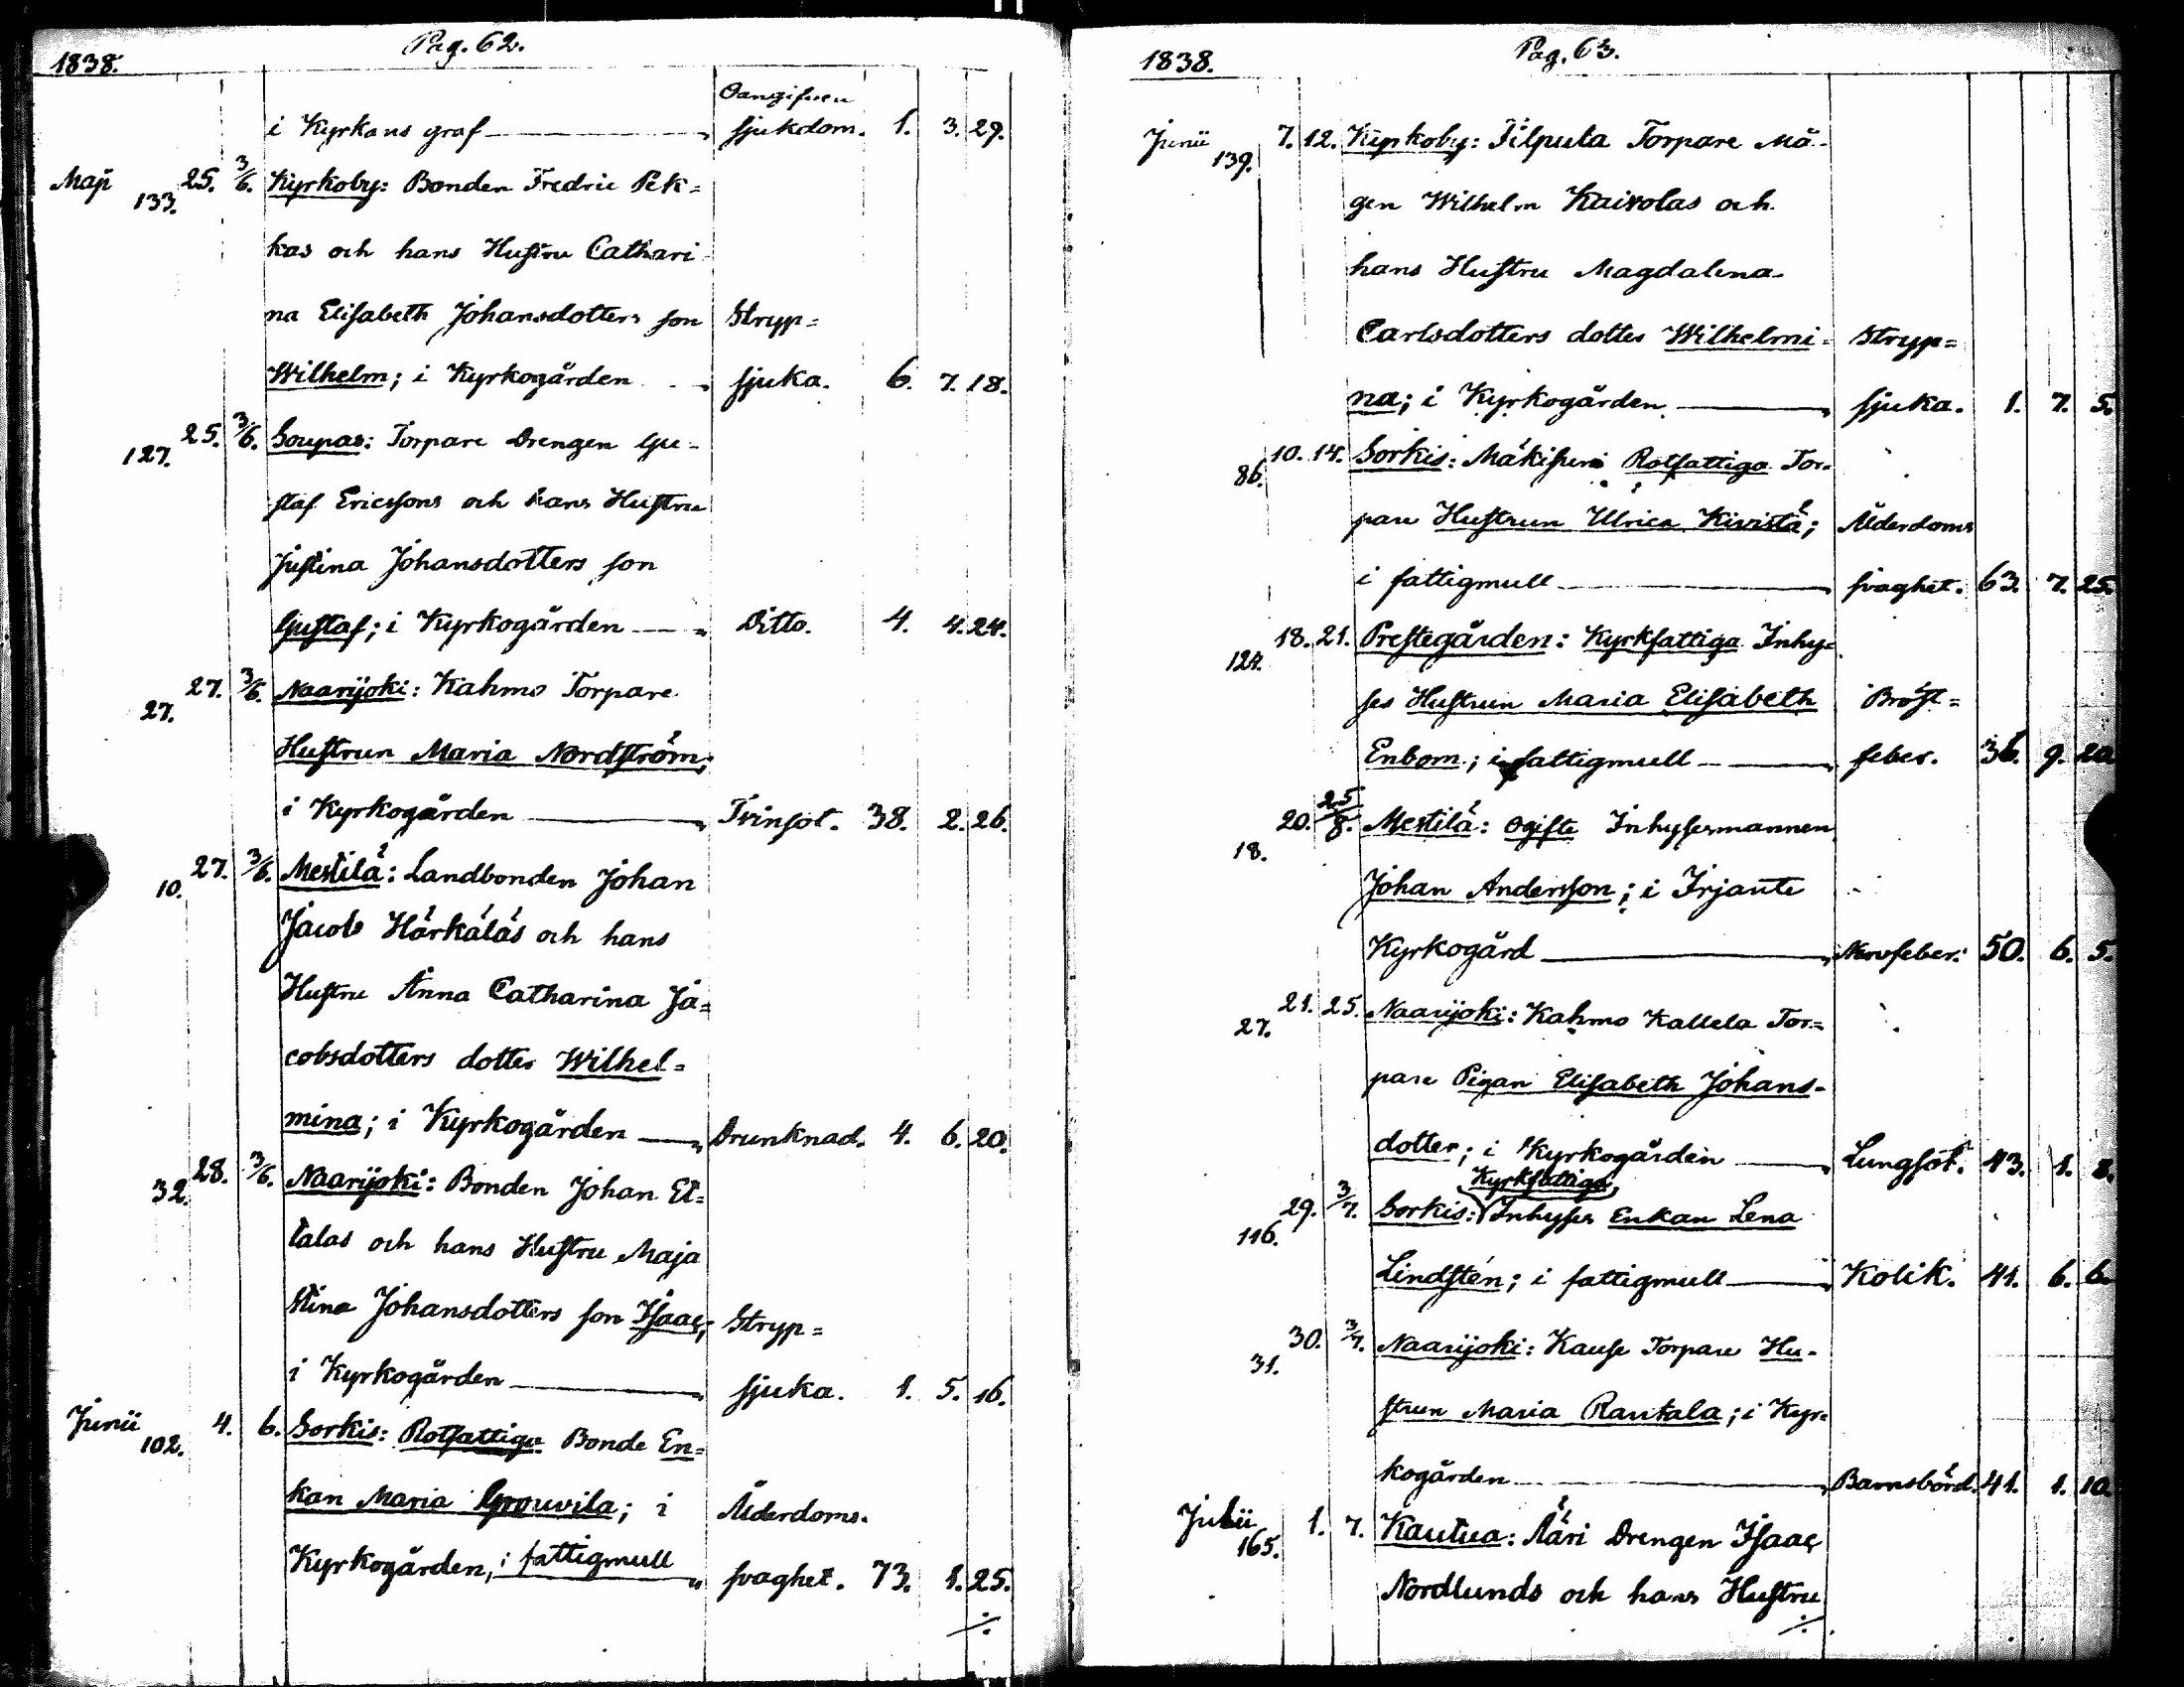 1838.
Pag. 62.
Oangifven
i Kyrkans graf sjukdom. 1. 3. 29.
Maji 133. 25. 3/6. Kyrkoby: Bonden Fredric Pek=
kas och hans Hustru Cathari
na Elisabeth Johansdotters son Stryp=
Wilhelm; i Kyrkogården sjuka. 6. 7. 18.
127. 25. 3/6. Soupas: Torpare Drengen Gu-
staf Ericssons och hans Hustru
Justina Johansdotters son
Gustaf; i Kyrkogården Ditto. 4. 4. 24.
27. 27. 3/6. Naarijoki: Kahmo Torpare
Hustrun Maria Nordström;
i Kyrkogården Tvinsot. 38. 2. 26.
10. 27. 3/6. Mestilä: Landbonden Johan
Jacob Härkäläs och hans
Hustru Anna Catharina Ja=
cobsdotters dotter Wilhel=
mina; i Kyrkogården Drunknad. 4. 6. 20.
32. 28. 3/6. Naarijoki: Bonden Johan Et=
talas och hans Hustru Maja
Stina Johansdotters son Isaac; Stryp=
i Kyrkogården sjuka. 1. 5. 16.
Junii 102. 4. 6. Sorkis: Rotfattiga Bonde En=
kan Maria Grouvila; i Ålderdoms-
Kyrkogården, i fattigmull svaghet. 73. 1. 25.
./.
1838.
Pag. 63.
Junii 139. 7. 12. Kyrkoby: Filpula Torpare Må-
gen Wilhelm Kaivolas och
hans Hustru Magdalena
Carlsdotters dotter Wilhelmi= Stryp=
na; i Kyrkogården sjuka. 1. 7. 5.
86. 10. 14. Sorkis: Mäkisuri Rotfattiga Tor=
pare Hustrun Ulrica Kivistä; Ålderdoms
i fattigmull svaghet. 63. 7. 25.
124. 18. 21. Prestegården: Kyrkfattiga Inhy=
ses Hustrun Maria Elisabeth Bröst=
Enbom; i fattigmull feber. 36. 9. 20
18. 20. 25/8. Mestilä: ogifte Inhysesmannen
Johan Andersson; i Irjante
Kyrkogård Nervfeber. 50. 6. 5.
27. 21. 25. Naarijoki: Kahmo Kallela Tor=
pare Pigan Elisabeth Johans-
dotter; i Kyrkogården Lungsot. 43. 1. 8.
Kyrkfattiga
116. 29. 3/7. Sorkis: Inhyses Enkan Lena
Lindstén; i fattigmull Kolik. 41. 6. 6.
31. 30. 3/7. Naarijoki: Kause Torpare Hu-
strun Maria Rautala; i Kyr=
kogården Barnsbörd. 41. 1. 10.
Julii 165. 1. 7. Kautua: Ääri Drengen Isaac
Nordlunds och hans Hustru
./.